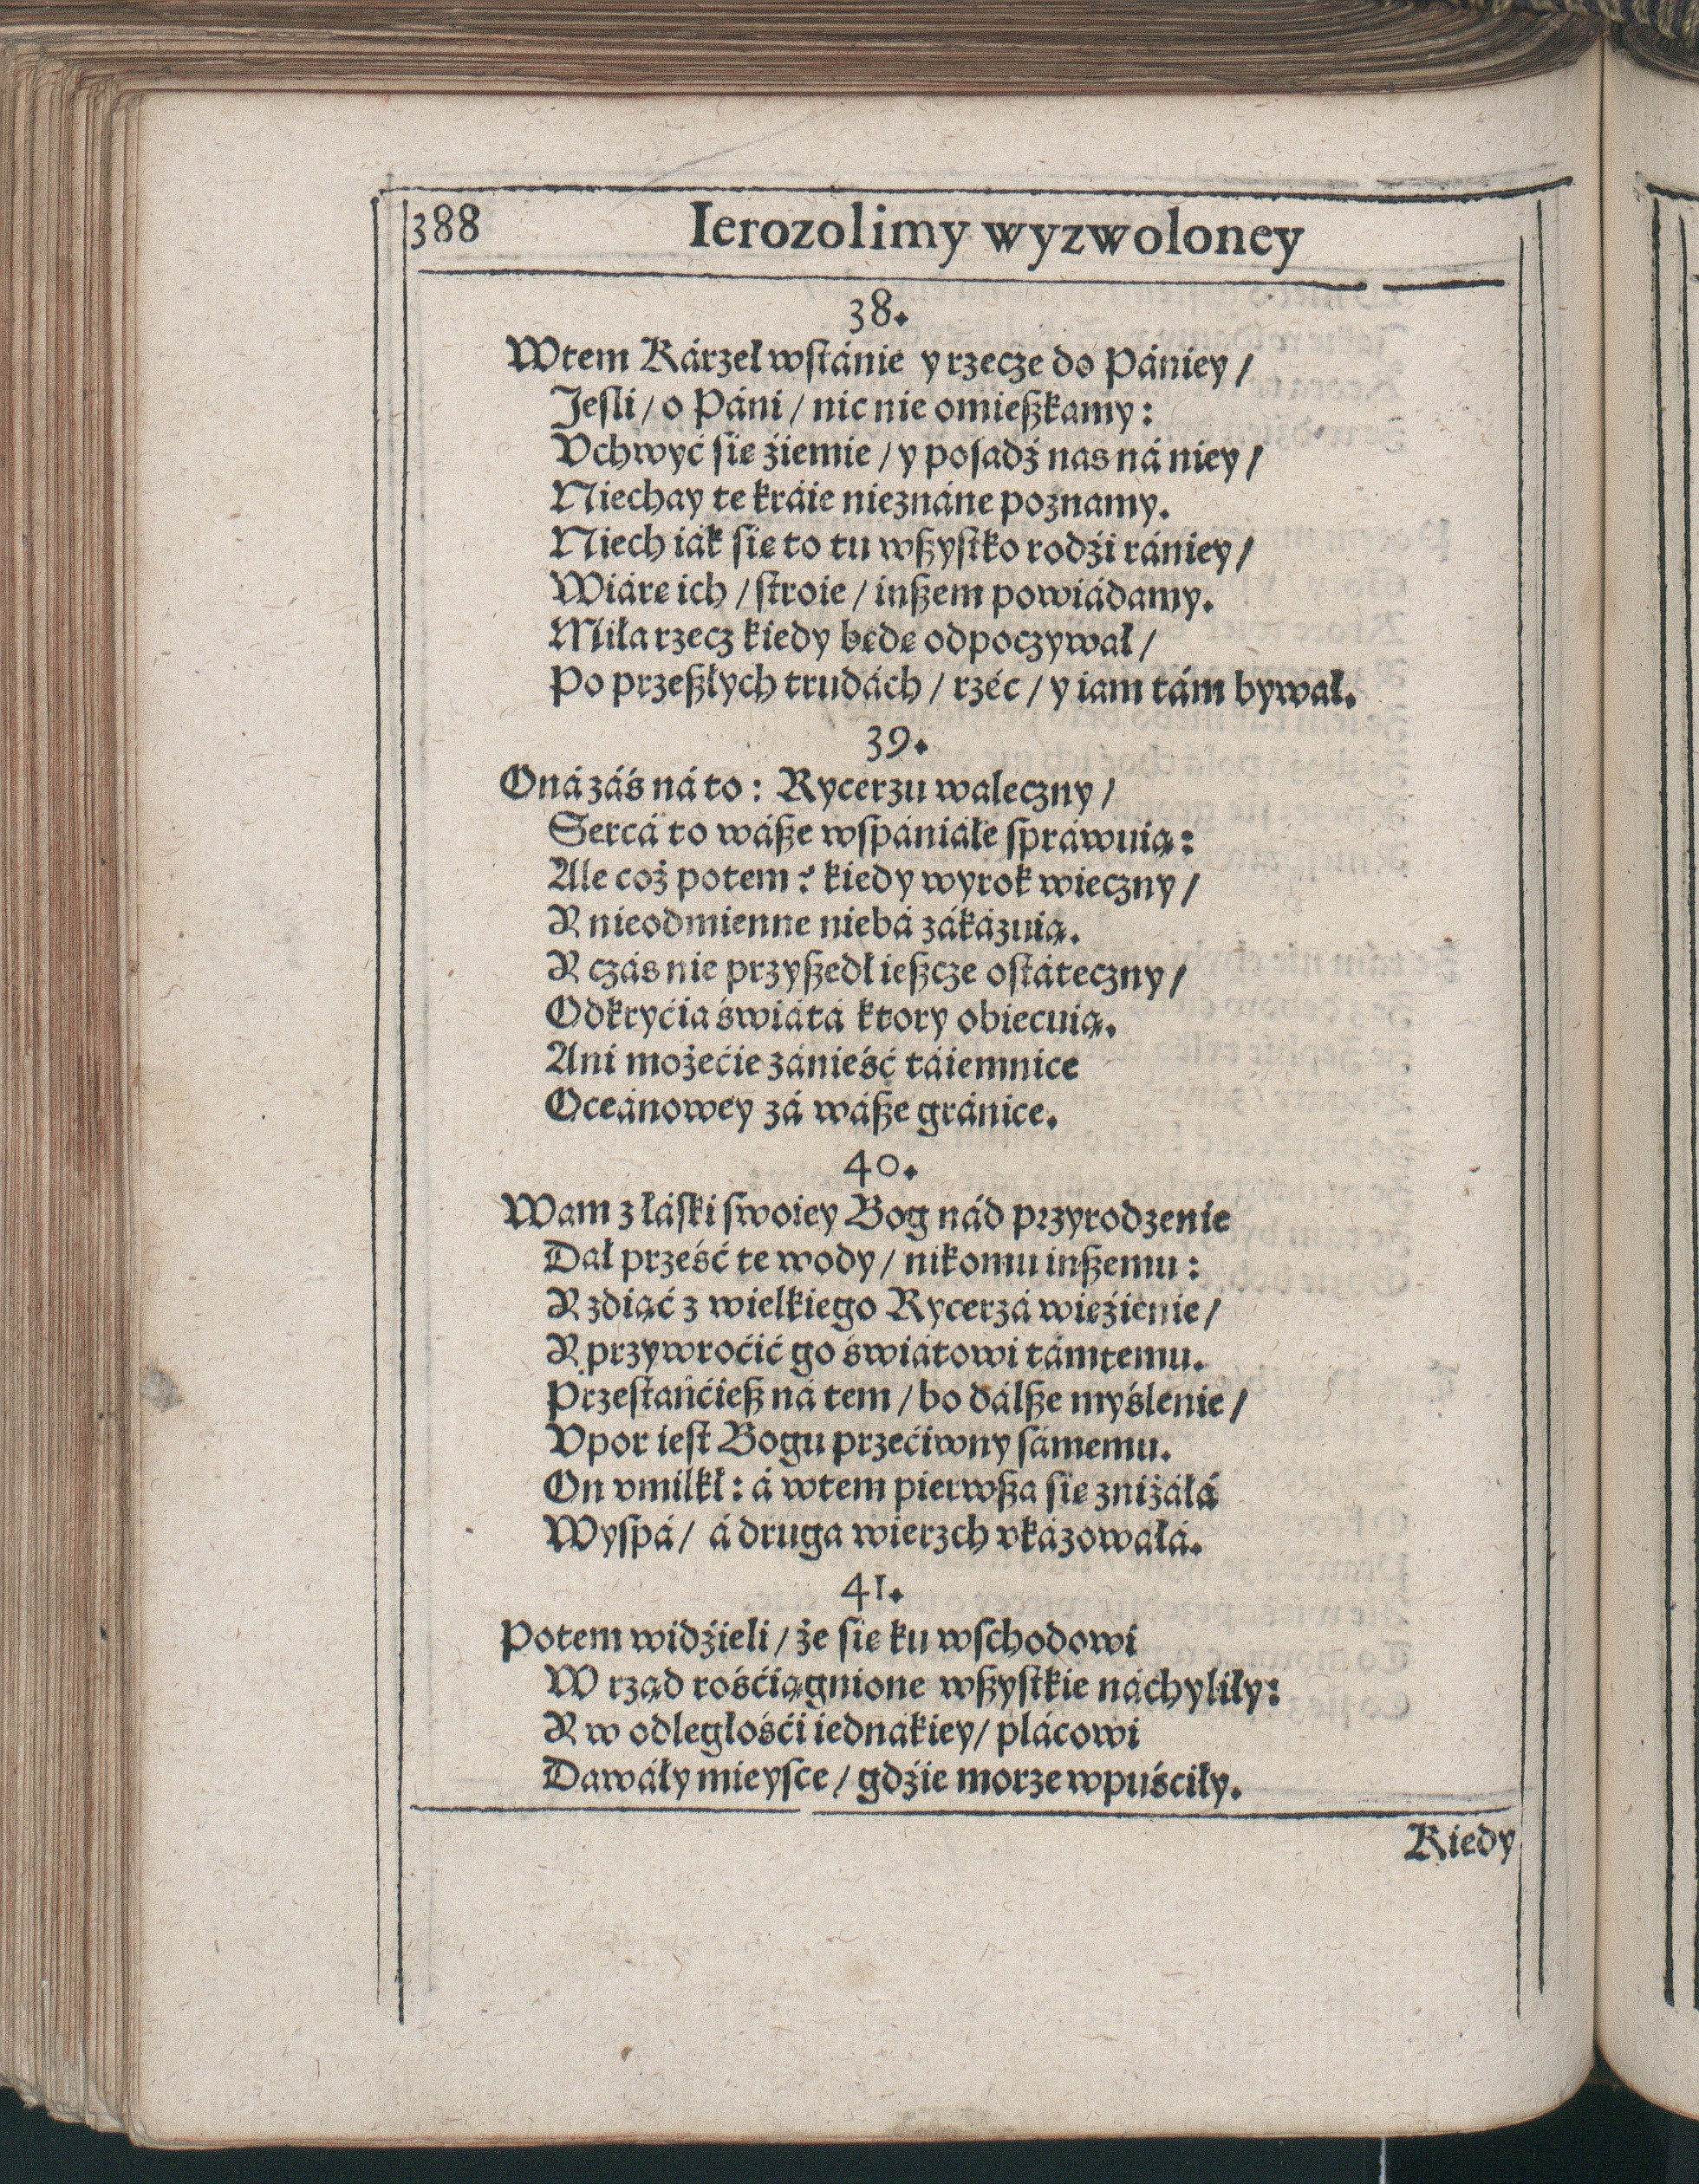 388 Ierozolimy wyzwoloney
38.
Wtem Kárzeł wſtánie y rzecze do Pániey /
Jeſli / o Páni / nic nie omießkamy:
Vchwyć ſię źiemie / y poſadź nas ná niey /
Niechay te kráie nieznáne poznamy.
Niech iák ſię to tu wßyſtko rodźi rániey /
Wiárę ich / ſtroie / inßem powiádamy.
Miła rzecz kiedy będę odpoczywał /
Po przeßłych trudách / rzéc / y iam tám bywał.
39.
Oná záś ná to: Rycerzu waleczny /
Sercá to wáße wſpániáłe ſpráwuią:
Ale coż potem? kiedy wyrok wieczny /
Y nieodmienne niebá zákázuią.
Y czás nie przyßedł ießcze oſtáteczny /
Odkryćia świátá ktory obiecuią.
Ani możećie zánieść táiemnice
Oceánowey zá wáße gránice.
40.
Wam z łáſki ſwoiey Bog nád przyrodzenie
Dał prześć te wody / nikomu inßemu:
Y zdiąć z wielkiego Rycerzá więźienie /
Y przywroćić go świátowi támtemu.
Przeſtańćieß ná tem / bo dálße myślenie /
Vpor ieſt Bogu przećiwny ſámemu.
On vmilkł: á wtem pierwßa ſię zniżáłá
Wyſpá / á druga wierzch vkázowałá.
41.
Potem widźieli / że ſię ku wſchodowi
W rząd rośćiągnione wßyſtkie náchyliły:
Y w odległośći iednákiey / plácowi
Dawáły mieyſce / gdźie morze wpuściły.
Kiedy